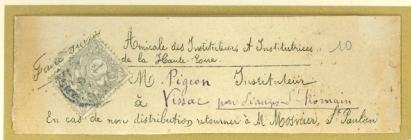 Faire suivre
Amicale des Instituteurs et Institutrices 10
de la Haute-Loire.
M. Pigeon Instituteur
à Vissac par Siaugues-St-Romain
En cas de non distribution retourner à M. Mosnier, St Paulien